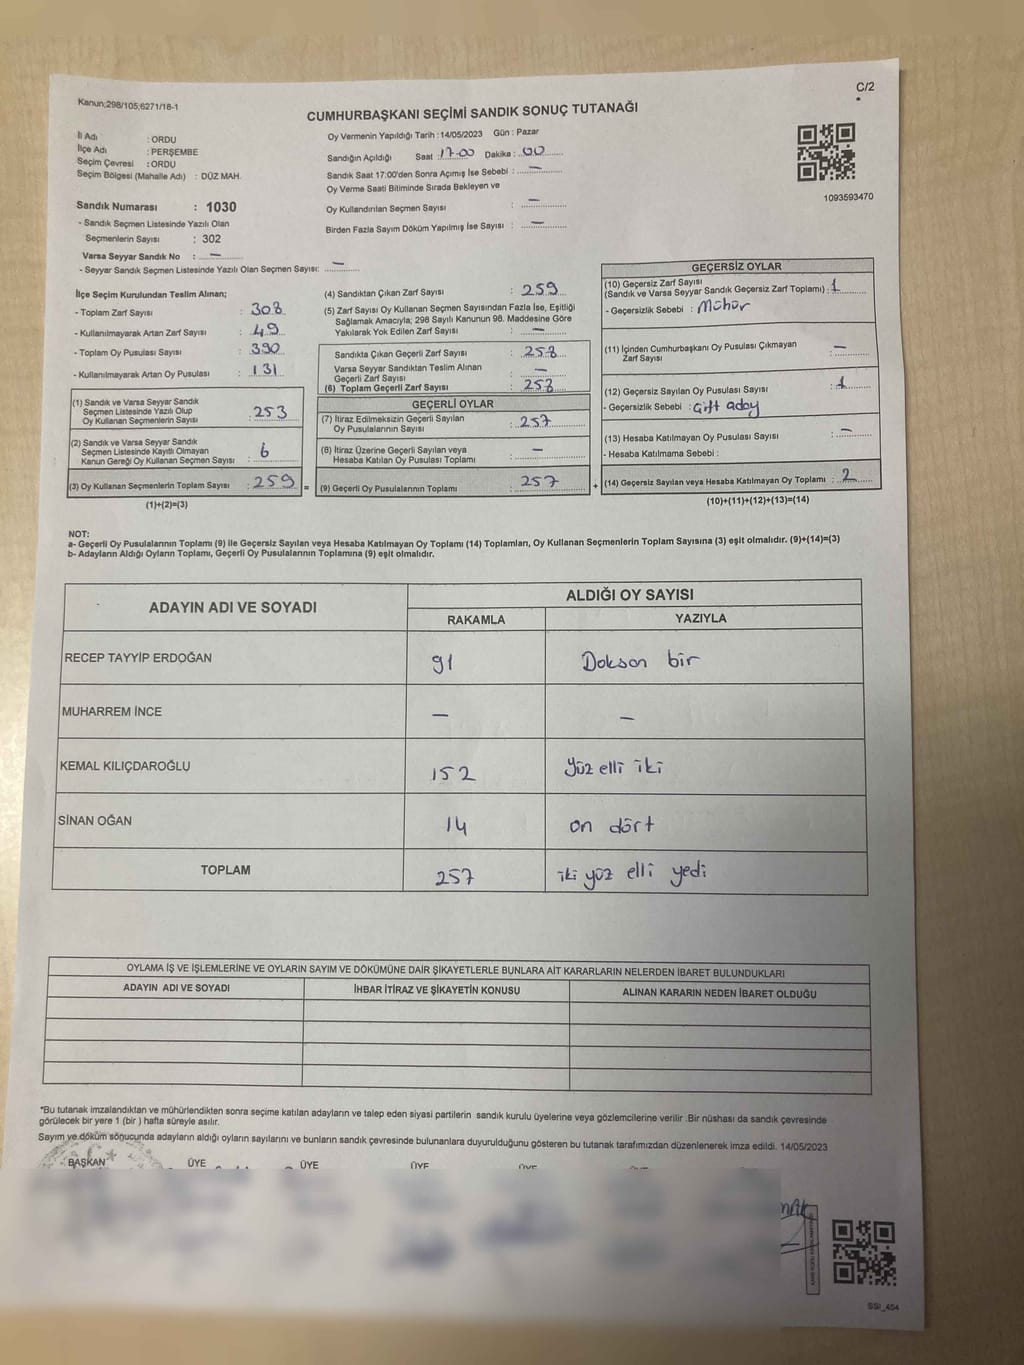 Kanun;298/105;6271/18-1
C/2
CUMHURBAŞKANI SEÇİMİ SANDIK SONUÇ TUTANAĞI
İl Adı : ORDU
İlçe Adı : PERŞEMBE
Seçim Çevresi : ORDU
Seçim Bölgesi (Mahalle Adı) : DÜZ MAH.
Sandık Numarası : 1030
- Sandık Seçmen Listesinde Yazılı Olan
Seçmenlerin Sayısı : 302
Varsa Seyyar Sandık No : —
- Seyyar Sandık Seçmen Listesinde Yazılı Olan Seçmen Sayısı: —
Oy Vermenin Yapıldığı Tarih :14/05/2023 Gün : Pazar
Sandığın Açıldığı Saat : 17.00 Dakika : 00
Sandık Saat 17:00'den Sonra Açımış İse Sebebi : —
Oy Verme Saati Bitiminde Sırada Bekleyen ve
Oy Kullandırılan Seçmen Sayısı : —
Birden Fazla Sayım Döküm Yapılmış İse Sayısı : —
1093593470
İlçe Seçim Kurulundan Teslim Alınan;
- Toplam Zarf Sayısı : 308
- Kullanılmayarak Artan Zarf Sayısı : 49
- Toplam Oy Pusulası Sayısı : 390
- Kullanılmayarak Artan Oy Pusulası : 131
(1) Sandık ve Varsa Seyyar Sandık
Seçmen Listesinde Yazılı Olup
Oy Kullanan Seçmenlerin Sayısı : 253
(2) Sandık ve Varsa Seyyar Sandık
Seçmen Listesinde Kayıtlı Olmayan
Kanun Gereği Oy Kullanan Seçmen Sayısı : 6
(3) Oy Kullanan Seçmenlerin Toplam Sayısı : 259 =
(1)+(2)=(3)
(4) Sandıktan Çıkan Zarf Sayısı : 259
(5) Zarf Sayısı Oy Kullanan Seçmen Sayısından Fazla İse, Eşitliği
Sağlamak Amacıyla; 298 Sayılı Kanunun 98. Maddesine Göre
Yakılarak Yok Edilen Zarf Sayısı : —
Sandıkta Çıkan Geçerli Zarf Sayısı : 258
Varsa Seyyar Sandıktan Teslim Alınan
Geçerli Zarf Sayısı : —
(6) Toplam Geçerli Zarf Sayısı : 258
GEÇERLİ OYLAR
(7) İtiraz Edilmeksizin Geçerli Sayılan
Oy Pusulalarının Sayısı : 257
(8) İtiraz Üzerine Geçerli Sayılan veya
Hesaba Katılan Oy Pusulası Toplamı : —
(9) Geçerli Oy Pusulalarının Toplamı : 257 +
GEÇERSİZ OYLAR
(10) Geçersiz Zarf Sayısı
(Sandık ve Varsa Seyyar Sandık Geçersiz Zarf Toplamı) : 1
- Geçersizlik Sebebi : Mühür
(11) İçinden Cumhurbaşkanı Oy Pusulası Çıkmayan
Zarf Sayısı : —
(12) Geçersiz Sayılan Oy Pusulası Sayısı : 1
- Geçersizlik Sebebi : Çift aday
(13) Hesaba Katılmayan Oy Pusulası Sayısı : —
- Hesaba Katılmama Sebebi :
(14) Geçersiz Sayılan veya Hesaba Katılmayan Oy Toplamı : 2
(10)+(11)+(12)+(13)=(14)
NOT:
a- Geçerli Oy Pusulalarının Toplamı (9) ile Geçersiz Sayılan veya Hesaba Katılmayan Oy Toplamı (14) Toplamları, Oy Kullanan Seçmenlerin Toplam Sayısına (3) eşit olmalıdır. (9)+(14)=(3)
b- Adayların Aldığı Oyların Toplamı, Geçerli Oy Pusulalarının Toplamına (9) eşit olmalıdır.
ADAYIN ADI VE SOYADI
ALDIĞI OY SAYISI
RAKAMLA YAZIYLA
RECEP TAYYİP ERDOĞAN 91 Doksan bir
MUHARREM İNCE — —
KEMAL KILIÇDAROĞLU 152 Yüz elli iki
SİNAN OĞAN 14 on dört
TOPLAM 257 iki yüz elli yedi
OYLAMA İŞ VE İŞLEMLERİNE VE OYLARIN SAYIM VE DÖKÜMÜNE DAİR ŞİKAYETLERLE BUNLARA AİT KARARLARIN NELERDEN İBARET BULUNDUKLARI
ADAYIN ADI VE SOYADI İHBAR İTİRAZ VE ŞİKAYETİN KONUSU ALINAN KARARIN NEDEN İBARET OLDUĞU
*Bu tutanak imzalandıktan ve mühürlendikten sonra seçime katılan adayların ve talep eden siyasi partilerin sandık kurulu üyelerine veya gözlemcilerine verilir .Bir nüshası da sandık çevresinde
görülecek bir yere 1 (bir ) hafta süreyle asılır.
Sayım ve döküm sonucunda adayların aldığı oyların sayılarını ve bunların sandık çevresinde bulunanlara duyurulduğunu gösteren bu tutanak tarafımızdan düzenlenerek imza edildi. 14/05/2023
BAŞKAN ÜYE ÜYE ÜYE
SSI_404